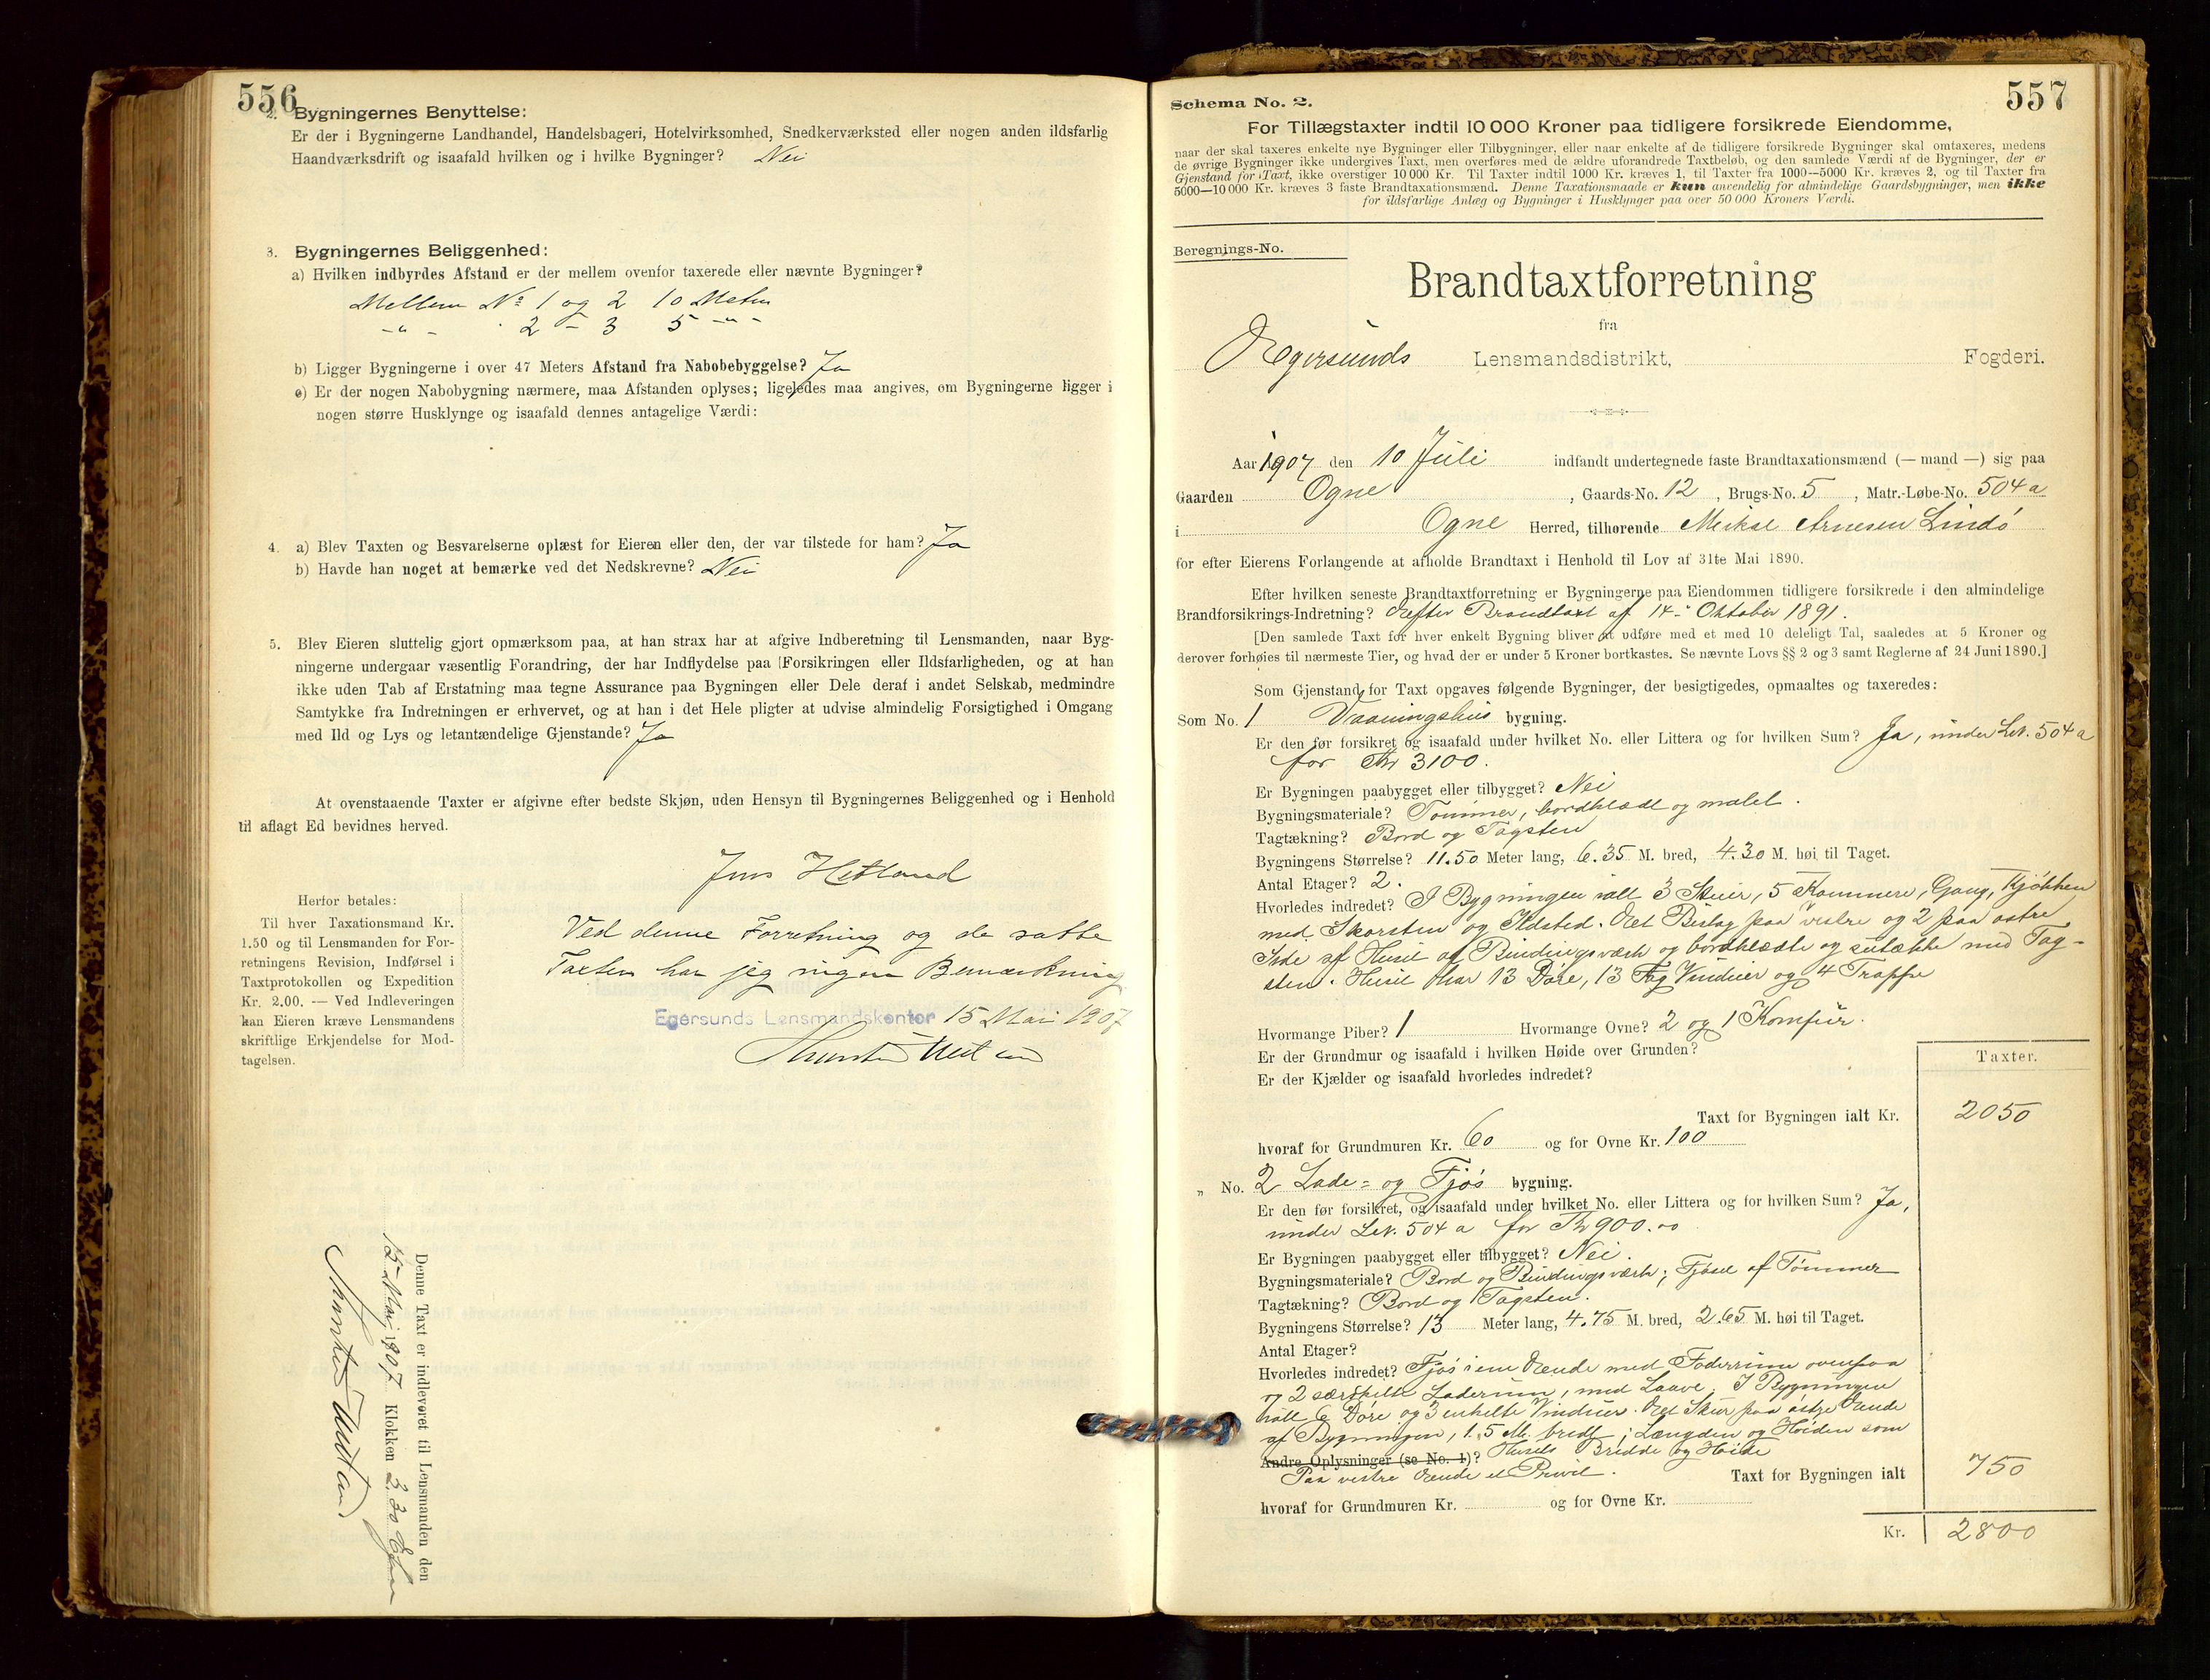 556
2. Bygningernes Benyttelse:
Er der i Bygningerne Landhandel, Handelsbageri, Hotelvirksomhed, Snedkerværksted eller nogen anden ildsfarlig
Haandværksdrift og isaafald hvilken og i hvilke Bygninger? Nei
3. Bygningernes Beliggenhed:
a) Hvilken indbyrdes Afstand er der mellem ovenfor taxerede eller nævnte Bygninger?
Mellem No 1 og 2 10 Meter
-"- - 2 - 3 5 -"-
b) Ligger Bygningerne i over 47 Meters Afstand fra Nabobebyggelse? Ja
c) Er der nogen Nabobygning nærmere, maa Afstanden oplyses; ligeledes maa angives, om Bygningerne ligger i
nogen større Husklynge og isaafald dennes antagelige Værdi:
4. a) Blev Taxten og Besvarelserne oplæst for Eieren eller den, der var tilstede for ham? Ja
b) Havde han noget at bemærke ved det Nedskrevne? Nei
5. Blev Eieren sluttelig gjort opmærksom paa, at han strax har at afgive Indberetning til Lensmanden, naar Byg-
ningerne undergaar væsentlig Forandring, der har Indflydelse paa Forsikringen eller Ildsfarligheden, og at han
ikke uden Tab af Erstatning maa tegne Assurance paa Bygningen eller Dele deraf i andet Selskab, medmindre
Samtykke fra Indretningen er erhvervet, og at han i det Hele pligter at udvise almindelig Forsigtighed i Omgang
med Ild og Lys og letantændelige Gjenstande? Ja
At ovenstaaende Taxter er afgivne efter bedste Skjøn, uden Hensyn til Bygningernes Beliggenhed og i Henhold
til aflagt Ed bevidnes herved.
Jens Hetland
Herfor betales:
Til hver Taxationsmand Kr.
1.50 og til Lensmanden for For-
retningens Revision, Indførsel i
Taxtprotokollen og Expedition
Kr. 2.00. — Ved Indleveringen
kan Eieren kræve Lensmandens
skriftlige Erkjendelse for Mod-
tagelsen.
Ved denne Forretning og de satte
Taxter har jeg ingen Bemærkning
Egersunds Lensmandskontor 15 Mai 1907
Denne Taxt er indleveret til Lensmanden den
15 Mai 1907 Klokken 3.30
557
Schema No. 2.
For Tillægstaxter indtil 10 000 Kroner paa tidligere forsikrede Eiendomme,
naar der skal taxeres enkelte nye Bygninger eller Tilbygninger, eller naar enkelte af de tidligere forsikrede Bygninger skal omtaxeres, medens
de øvrige Bygninger ikke undergives Taxt, men overføres med de ældre uforandrede Taxtbeløb, og den samlede Værdi af de Bygninger, der er
Gjenstand for Taxt, ikke overstiger 10 000 Kr. Til Taxter indtil 1000 Kr. kræves 1, til Taxter fra 1000—5000 Kr. kræves 2, og til Taxter fra
5000—10 000 Kr. kræves 3 faste Brandtaxationsmænd. Denne Taxationsmaade er kun anvendelig for almindelige Gaardsbygninger, men ikke
for ildsfarlige Anlæg og Bygninger i Husklynger paa over 50 000 Kroners Værdi.
Beregnings-No.
Brandtaxtforretning
fra
Egersunds Lensmandsdistrikt, Fogderi.
Aar 1907 den 10 Juli indfandt undertegnede faste Brandtaxationsmænd (— mand —) sig paa
Gaarden Ogne, Gaards-No. 12, Brugs-No. 5, Matr.-Løbe-No. 504 a
i Ogne Herred, tilhørende Mikal Arnesen Lindø
for efter Eierens Forlangende at afholde Brandtaxt i Henhold til Lov af 31te Mai 1890.
Efter hvilken seneste Brandtaxtforretning er Bygningerne paa Eiendommen tidligere forsikrede i den almindelige
Brandforsikrings-Indretning? Efter Brandtaxt af 14 Oktober 1891.
[Den samlede Taxt for hver enkelt Bygning bliver at udføre med et med 10 deleligt Tal, saaledes at 5 Kroner og
derover forhøies til nærmeste Tier, og hvad der er under 5 Kroner bortkastes. Se nævnte Lovs §§ 2 og 3 samt Reglerne af 24 Juni 1890.]
Som Gjenstand for Taxt opgaves følgende Bygninger, der besigtigedes, opmaaltes og taxeredes:
Som No. 1 Vaaningshus bygning.
Er den før forsikret og isaafald under hvilket No. eller Littera og for hvilken Sum? Ja, under Lit. 504 a
for Kr 3100.
Er Bygningen paabygget eller tilbygget? Nei
Bygningsmateriale? Tømmer, bordklædt og malet.
Tagtækning? Bord og Tagsten
Bygningens Størrelse? 11.50 Meter lang, 6.35 M. bred, 4.30 M. høi til Taget.
Antal Etager? 2.
Hvorledes indredet? I Bygningen ialt 3 Stuer, 5 Kammere, Gang, Kjøkken
med Skorsten og Ildsted. Et Bislag paa vestre og 2 paa østre
Side af Huset af Bindingsværk og bordklædte og tække med Tag-
sten. Huset har 13 Døre, 13 Fag Vinduer og 4 Trappe
Hvormange Piber? 1 Hvormange Ovne? 2 og 1 Komfur.
Er der Grundmur og isaafald i hvilken Høide over Grunden?
Er der Kjælder og isaafald hvorledes indredet?
Taxter.
Taxt for Bygningen ialt Kr. 2050
hvoraf for Grundmuren Kr. 60 og for Ovne Kr. 100
" No. 2 Lade- og Fjøs bygning.
Er den før forsikret, og isaafald under hvilket No. eller Littera og for hvilken Sum? Ja,
under Lit. 504 a for Kr 900.00
Er Bygningen paabygget eller tilbygget? Nei.
Bygningsmateriale? Bord og Bindingsværk; Fjøset af Tømmer
Tagtækning? Bord og Tagsten.
Bygningens Størrelse? 13 Meter lang, 4.75 M. bred, 2.65 M. høi til Taget.
Antal Etager?
Hvorledes indredet? Fjøs i ene Ænde med Foderrum ovenpaa
og 2 særskilte Laderum, med Laave. I Bygningen
ialt 6 Døre og 3 enkelte Vinduer. Et Skur paa østre Ænde
af Bygningen, 1.5 M. bredt; Længden og Høiden som
Andre Oplysninger (se No. 1)? Husets Bredde og Høide
Paa vestre Ænde et Privet. Taxt for Bygningen ialt 750
hvoraf for Grundmuren Kr. og for Ovne Kr.
Kr. 2800